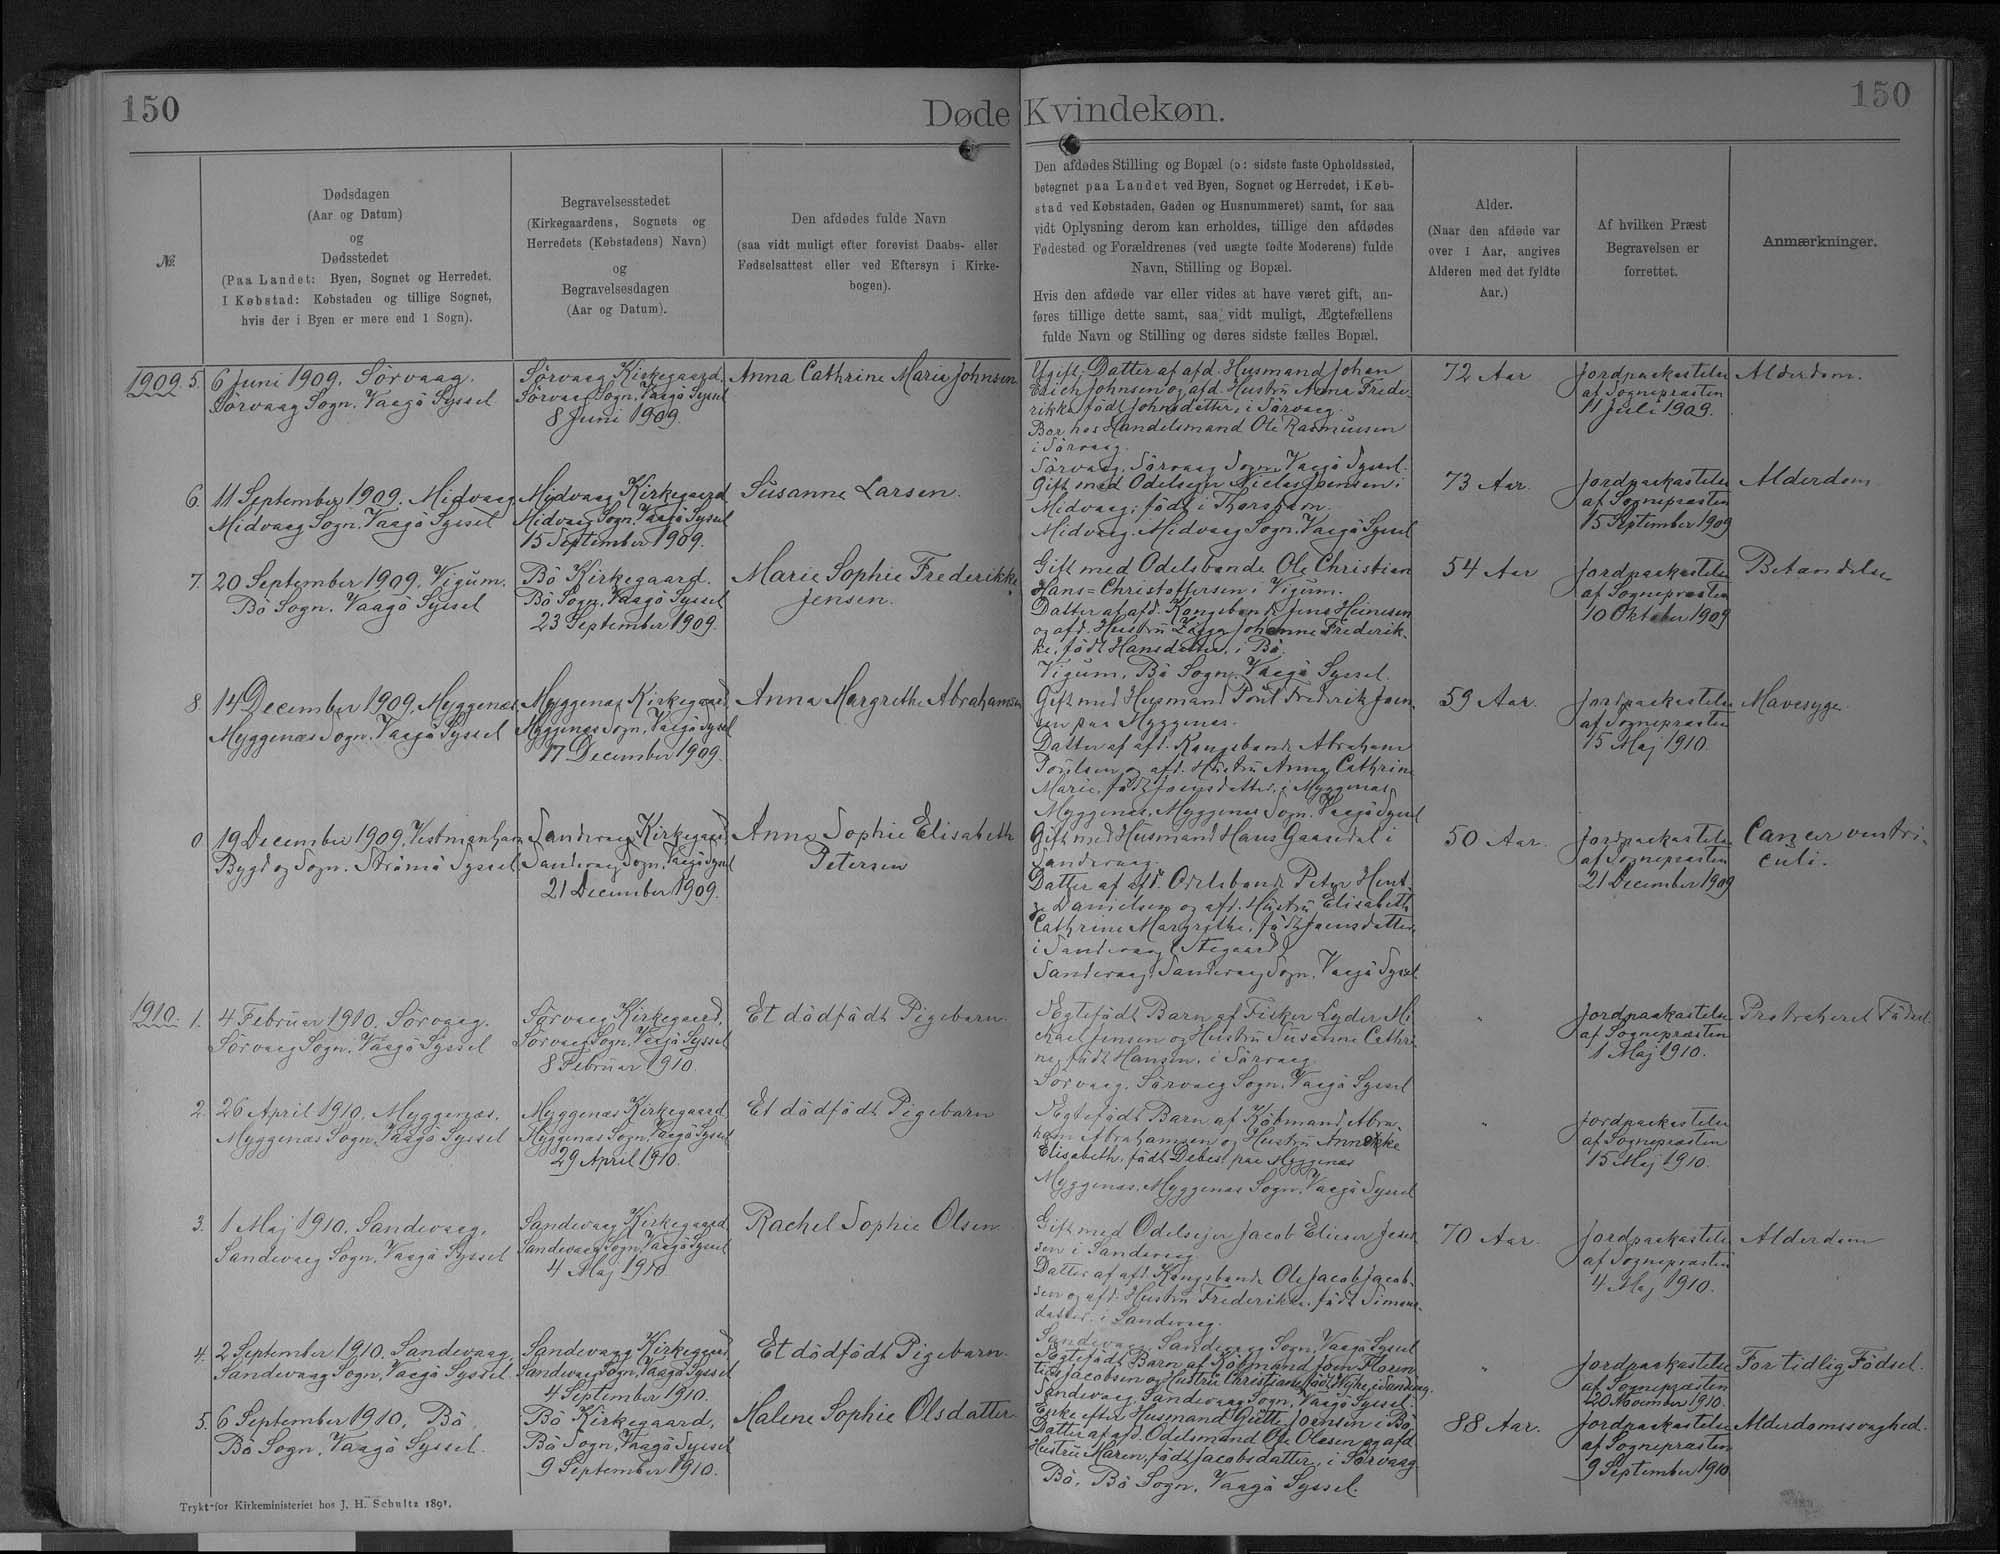 150
Døde Kvindekøn.
150
№
Dødsdagen
(Aar og Datum)
og
Dødsstedet
(Paa Landet: Byen, Sognet og Herredet.
I Købstad: Købstaden og tillige Sognet,
hvis der i Byen er mere end 1 Sogn).
Begravelsesstedet
(Kirkegaardens, Sognets og
Herredets (Købstadens) Navn)
og
Begravelsesdagen
(Aar og Datum).
Den afdødes fulde Navn
(saa vidt muligt efter forevist Daabs- eller
Fødselsattest eller ved Eftersyn i Kirke-
bogen).
Den afdødes Stilling og Bopæl (ɔ: sidste faste Opholdssted,
betegnet paa Landet ved Byen, Sognet og Herredet, i Køb-
stad ved Købstaden, Gaden og Husnummeret) samt, for saa
vidt Oplysning derom kan erholdes, tillige den afdødes
Fødested og Forældrenes (ved uægte fødte Moderens) fulde
Navn, Stilling og Bopæl.
Hvis den afdøde var eller vides at have været gift, an-
føres tillige dette samt, saa vidt muligt, Ægtefællens
fulde Navn og Stilling og deres sidste fælles Bopæl.
Alder.
(Naar den afdøde var
over 1 Aar, angives
Alderen med det fyldte
Aar.)
Af hvilken Præst
Begravelsen er
forrettet.
Anmærkninger.
1909. 5. 6 Juni 1909. Sörvaag.
Sörvaag Sogn. Vaagö Syssel
Sörvaag Kirkegaard.
Sörvaag Sogn, Vaagö Syssel
8 Juni 1909.
Anna Cathrine Marie Johnsen
Ugift, Datter af afd. Husmand Johan
Erich Johnsen og afd. Hustru Anna Frede-
rikke, född Johnsdatter, i Sörvaag.
Bor hos Handelsmand Ole Rasmussen
i Sörvaag.
Sörvaag, Sörvaag Sogn, Vaagö Syssel.
72 Aar
Jordpaakastelse
af Sognepræsten
11 Juli 1909.
Alderdom.
6. 11 September 1909. Midvaag
Midvaag Sogn, Vaagö Syssel
Midvaag Kirkegaard
Midvaag Sogn, Vaagö Syssel
15 September 1909.
Susanne Larsen.
Gift med Odelsejer Niclas Joensen i
Midvaag; födt i Thorshavn.
Midvaag, Midvaag Sogn, Vaagö Syssel
73 Aar.
Jordpaakastelse
af Sognepræsten
15 September 1909
Alderdom
7. 20 September 1909. Vigum.
Bö Sogn. Vaagö Syssel
Bö Kirkegaard.
Bö Sogn, Vaagö Syssel
23 September 1909.
Marie Sophie Frederikke
Jensen.
Gift med Odelsbonde Ole Christian
Hans=Christoffersen i Vigum.
Datter af afd. Kongsbonde Jens Heinesen
og afd. Hustru Johanne Frederik-
ke, födt Hansdatter, i Bö.
Vigum, Bö Sogn, Vaagö Syssel.
54 Aar
Jordpaakastelse
af Sognepræsten
10 Oktober 1909
Betændelse
8 14 December 1909. Myggenæs
Myggenæs Sogn. Vaagö Syssel
Myggenæs Kirkegaard
Myggenæs Sogn, Vaagö Syssel
17 December 1909.
Anna Margrethe Abrahamsen
Gift med Husmand Poul Frederik Joen-
sen paa Myggenæs.
Datter af afd. Kongsbonde Abraham
Poulsen og afd. Hustru Anna Cathrine
Marie, födt Joensdatter, i Myggenæs
Myggenæs, Myggenæs Sogn, Vaagö Syssel
59 Aar.
Jordpaakastelse
af Sognepræsten
15 Maj 1910.
Mavesyge.
0 19 December 1909. Vestmanhavn
Bygd og Sogn. Strömö Syssel
Sandevaag Kirkegaard
Sandevaag Sogn, Vaagö Syssel
21 December 1909.
Anna Sophie Elisabeth
Petersen
Gift med Husmand Hans Gaasedal i
Sandevaag.
Datter af afd. Odelsbonde Peter Hent-
ze Danielsen og afd. Hustru Elisabeth
Cathrine Margrethe, födt Joensdatter
i Sandevaag
Sandevaag, Sandevaag Sogn, Vaagö Syssel
50 Aar.
Jordpaakastelse
af Sognepræsten
21 December 1909
Cancer ventri-
culi.
1910. 1. 4 Februar 1910. Sörvaag.
Sörvaag Sogn. Vaagö Syssel
Sörvaag Kirkegaard,
Sörvaag Sogn, Vaagö Syssel
8 Februar 1910.
Et dödfödt Pigebarn.
Ægtefödt Barn af Fisker Lyder Mi-
chael Jensen og Hustru Susanne Cathri-
ne, födt Hansen, i Sörvaag.
Sörvaag, Sörvaag Sogn, Vaagö Syssel
"
Jordpaakastelse
af Sognepræsten
1 Maj 1910.
Protraheret Födsel
2. 26 April 1910. Myggenæs.
Myggenæs Sogn. Vaagö Syssel
Myggenæs Kirkegaard
Myggenæs Sogn, Vaagö Syssel
29 April 1910.
Et dödfödt Pigebarn
Ægtefödt Barn af Köbmand Abra-
ham Abrahamsen og Hustru Annekke
Elisabeth, födt Debes, paa Myggenæs
Myggenæs, Myggenæs Sogn, Vaagö Syssel
"
Jordpaakastelse
af Sognepræsten
15 Maj 1910.
3. 1 Maj 1910. Sandevaag,
Sandevaag Sogn, Vaagö Syssel
Sandevaag Kirkegaard
Sandevaag Sogn, Vaagö Syssel
4 Maj 1910
Rachel Sophie Olsen
Gift med Odelsejer Jacob Elieser
sen i Sandevaag.
Datter af afd. Kongsbonde Ole Jacob Jacob-
sen og afd. Hustru Frederikke, födt Simons-
datter, i Sandevaag.
Sandevaag, Sandevaag Sogn, Vaagö Syssel
70 Aar.
Jordpaakastelse
af Sognepræsten
4 Maj 1910.
Alderdom
4. 2 September 1910. Sandevaag,
Sandevaag Sogn, Vaagö Syssel
Sandevaag Kirkegaard
Sandevaag Sogn, Vaagö Syssel
4 September 1910.
Et dödfödt Pigebarn.
Ægtefödt Barn af Köbmand Joen Floren-
tius Jacobsen og Hustru Christiane, födt
Sandevaag, Sandevaag Sogn, Vaagö Syssel.
"
Jordpaakastelse
af Sognepræsten
20 November 1910.
For tidlig Födsel.
5. 6 September 1910. Bö.
Bö Sogn, Vaagö Syssel.
Bö Kirkegaard,
Bö Sogn, Vaagö Syssel
9 September 1910.
Malene Sophie Olsdatter
Enke efter Husmand Gutte Joensen i Bö
Datter af afd. Odelsmand Ole Olesen og afd.
Hustru Maren, födt Jacobsdatter, i Sörvaag
Bö, Bö Sogn, Vaagö Syssel.
88 Aar.
Jordpaakastelse
af Sognepræsten
9 September 1910
Alderdomssvaghed.
Trykt for Kirkeministeriet hos J. H. Schultz 1891.